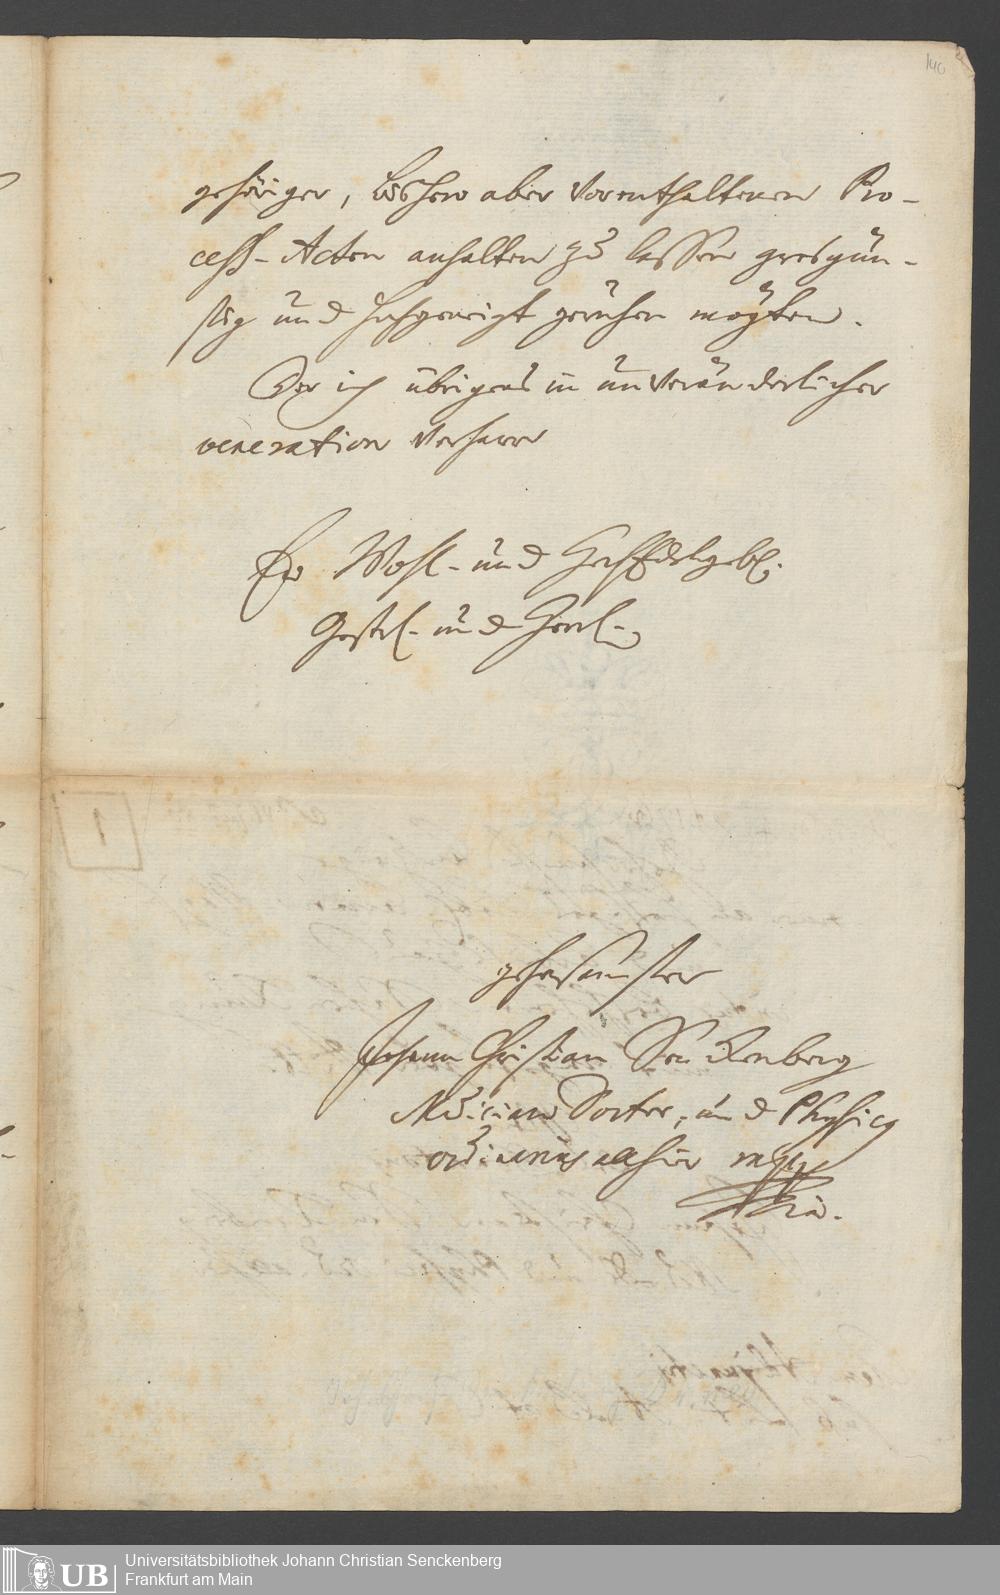 140
gehöriger, bishero aber vorenthaltenen Pro-
cess-Acten anhalten zu lassen grosgün-
stig und hochgeneigt geruhen mögten.
Der ich übrigens in unveränderlicher
veneration verharre
Ew Wohl- und HochEdelgebl.
Gestrl- und Herrl-
gehorsamster
Johann Christian Senckenberg
Medicinae Doctor, und Physicus
ordinarius alhier mppr
1
UB
Universitätsbibliothek Johann Christian Senckenberg
Frankfurt am Main